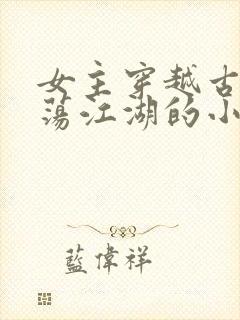 女主穿越古
荡江湖的小
藍偉祥